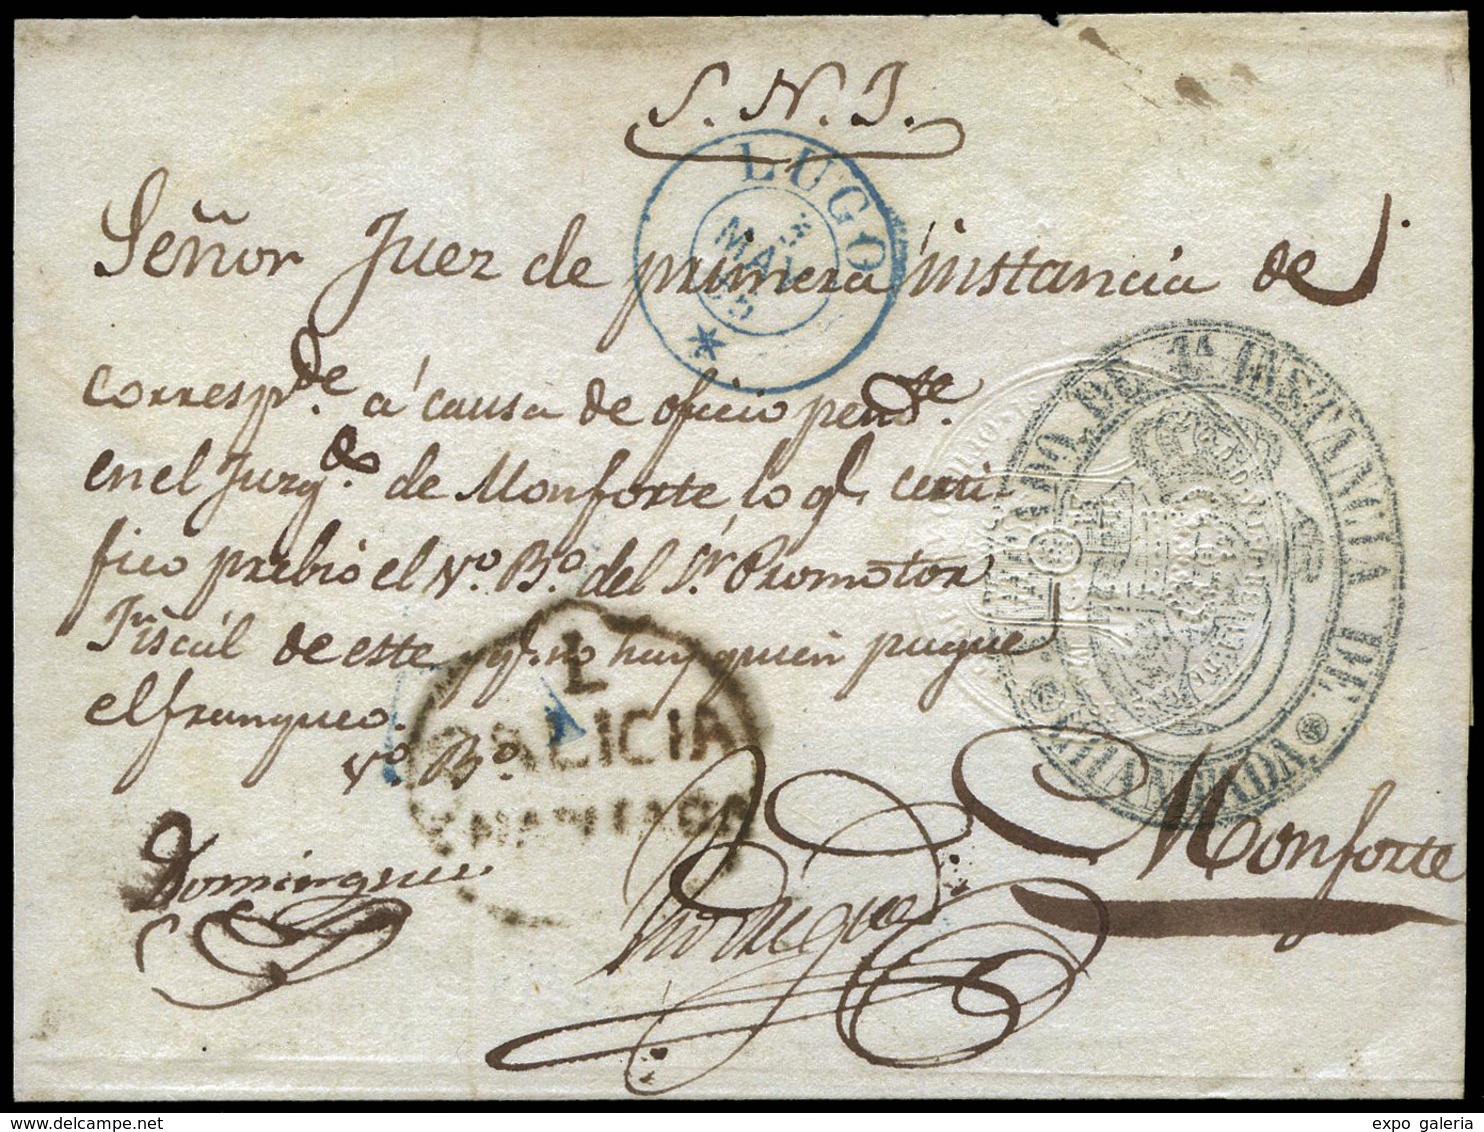 S. N. J.
LUGO
MAY
Señor Juez de primera instancia de
corresp.de á causa de oficio pend.te
en el Juzg.do de Monforte lo ql. certi-
fico prebio el Vo. Bo. del Sr. Promotor
Fiscál de este y ql. no hay quien pague
el franqueo.
Vo. Bo.
JUZGADO DE 1ª INSTANCIA DE
L
GALICIA
Monforte
Rodriguez
expo galeria